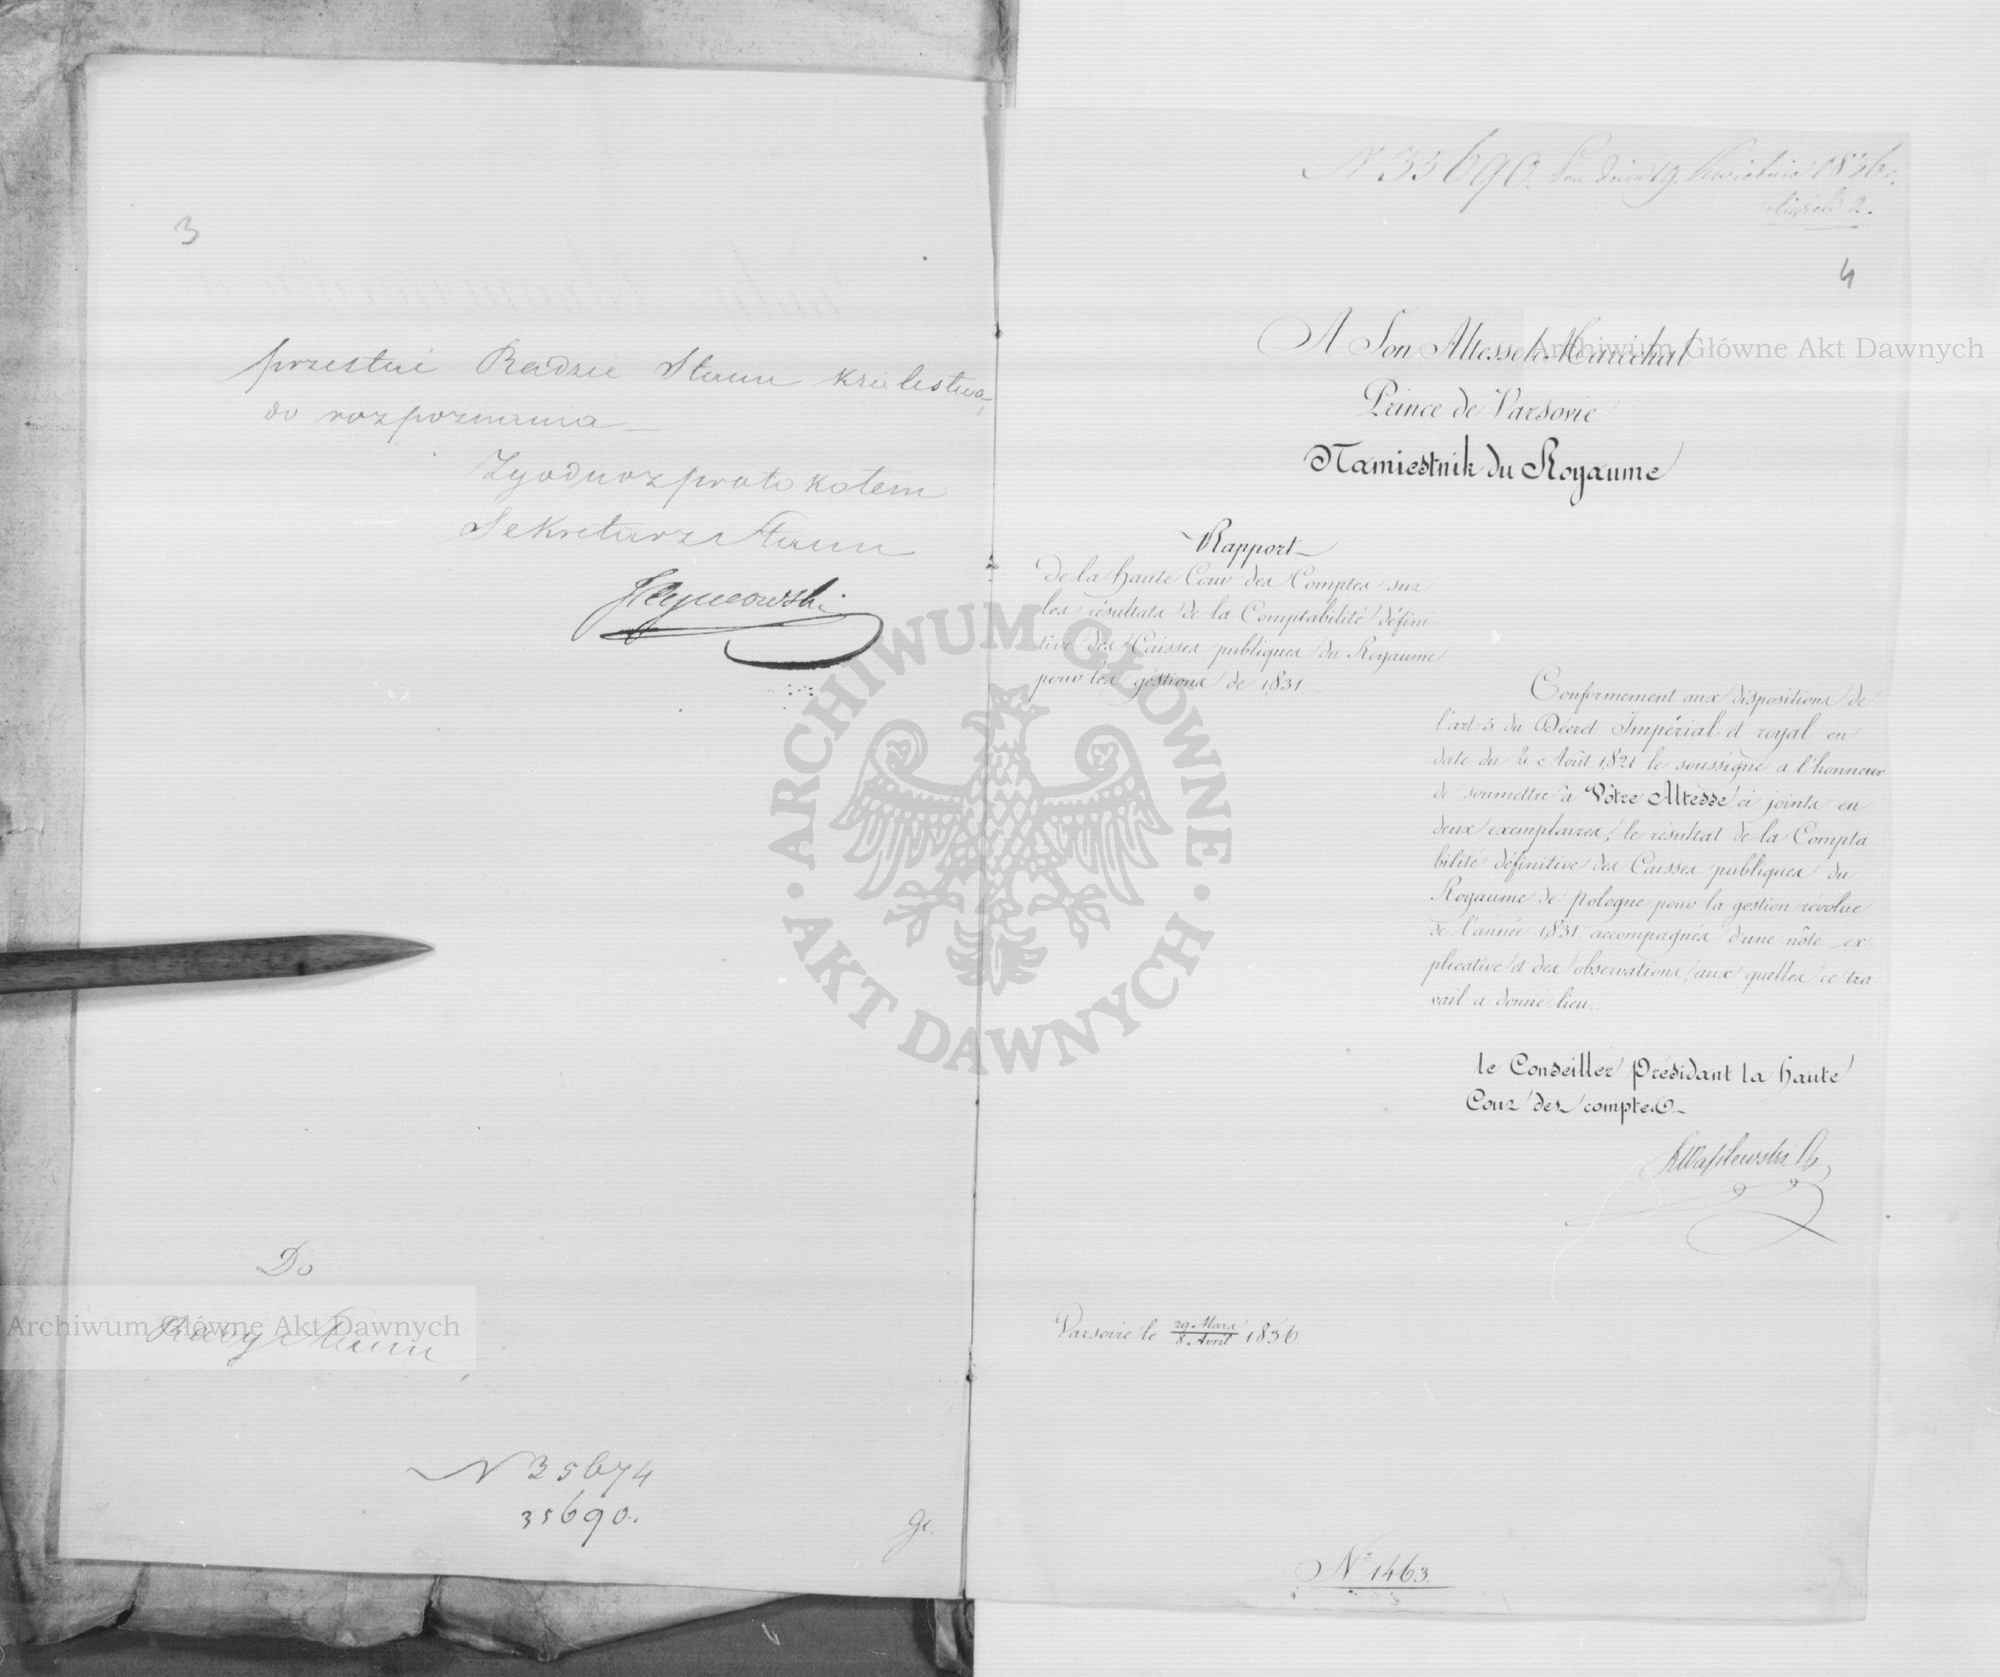 3
przesłać Radzie Stanu Królestwa,
do rozpoznania
Zgodno z protokołem
Sekretarz Stanu
Do
Rady Stanu
N 35674
35690.
N 35690. dnia 19. Kwietnia 1836 r.
4
A Son Altesse le Maréchal
Prince de Varsovie
Namiestnik du Royaume
Rapport
De la haute Cour des Comptes sur
les résultats de la Comptabilité défini
tive des Caisses publiques du Royaume
pour les géstions de 1831.
Conformement aux dispositions de
l'art: 5 du Décret Impérial et royal en
date du Août 1821 le soussigné a l'honneur
de soumettre à Vôtre Altesse ci joints en
deux exemplaires, le résultat de la Compta
bilité définitive des Caisses publiques du
Royaume de Pologne pour la gestion révolue
de l'année 1831 accompagnés d'une nôte ex
plicative et des observations aux quelles ce tra
vail a donné lieu.
le Conseiller Présidant la haute
Cour des comptes
Varsovie le 29 Mars / 8 Avril 1836.
Nº 1463.
Archiwum Główne Akt Dawnych
Archiwum Główne Akt Dawnych
ARCHIWUM GŁÓWNE · AKT DAWNYCH ·